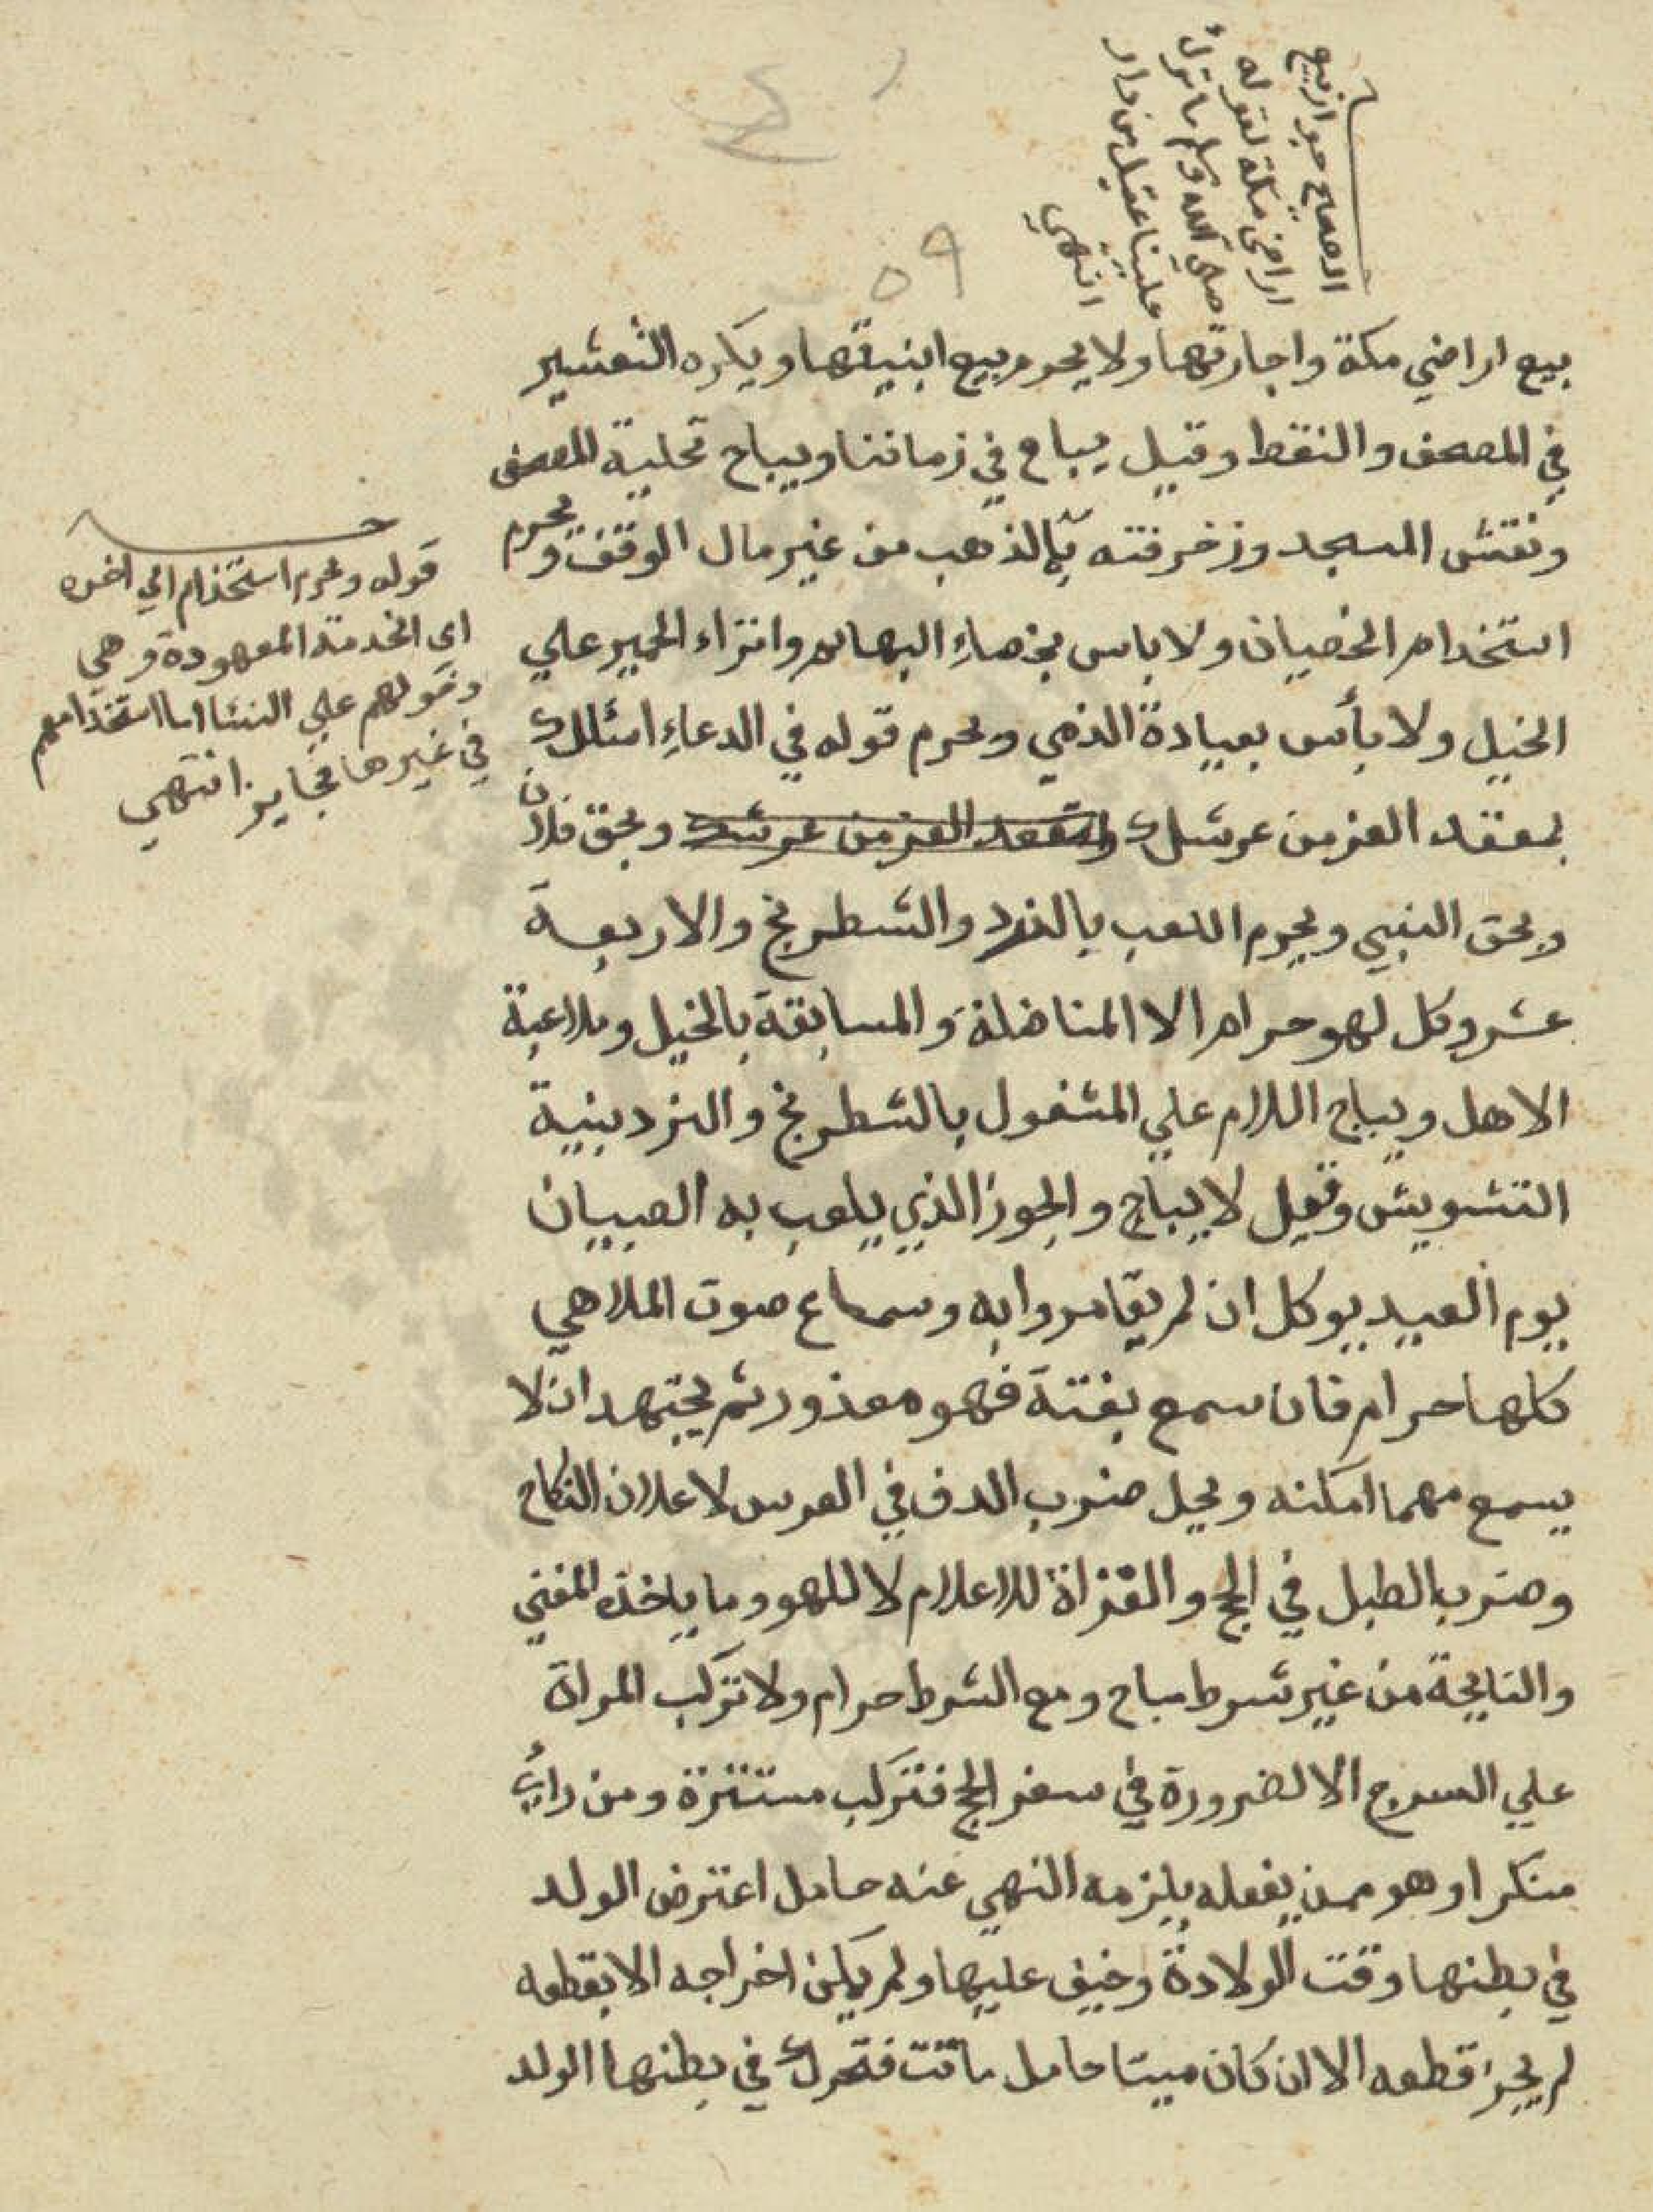 الصحيح جواز بيع
اراضي مكة لقوله
صلى الله وسلم ما ترك
علينا عقيل من دار
انتهى
٥٩
بيع اراضي مكة واجارتها ولا يحرم بيع ابنيتها ويكره التعشير
في المصحف والنقط وقيل يباح في زماننا ويباح تحلية المصحف
ونقش المسجد وزخرفته بالذهب من غير مال الوقف ويحرم
استخدام الخصيان ولا باس بخصاء البهايم وانزاء الحمير علي
الخيل ولا بأس بعيادة الذمي ويحرم قوله في الدعاء اسئلك
بمعقد العز من عرشك وبمقعد العز من عرشك وبحق فلان
وبحق النبي ويحرم اللعب بالنرد والشطرنج والاربعة
عشر وكل لهو حرام الا المناضلة والمسابقة بالخيل وملاعبة
الاهل ويباح السلام علي المشغول بالشطرنج والنرد بنية
التشويش وقيل لا يباح والجوز الذي يلعب به الصبيان
يوم العيد يوكل ان لم يقامروا به وسماع صوت الملاهي
كلها حرام فان سمع بغتة فهو معذور ثم يجتهد ان لا
يسمع مهما امكنه ويحل ضرب الدف في العرس لاعلان النكاح
وضرب الطبل في الحج والغزاة للاعلام لا للهو وما ياخذه المغني
والنايحة من غير شرط مباح ومع الشرط حرام ولا تركب المراة
علي السرج الا لضرورة في سفر الحج فتركب مستترة ومن راي
منكرا وهو ممن يفعله يلزمه النهي عنه حامل اعترض الولد
في بطنها وقت الولادة وخيف عليها ولم يمكن اخراجه الا بقطعه
لم يجز قطعه الا ان كان ميتا حامل ماتت فتحرك في بطنها الولد
قوله ويحرم استخدام الي اخره
اي الخدمة المعهودة وهي
دخولهم علي النسا اما استخدامهم
في غيرها فجايز انتهى